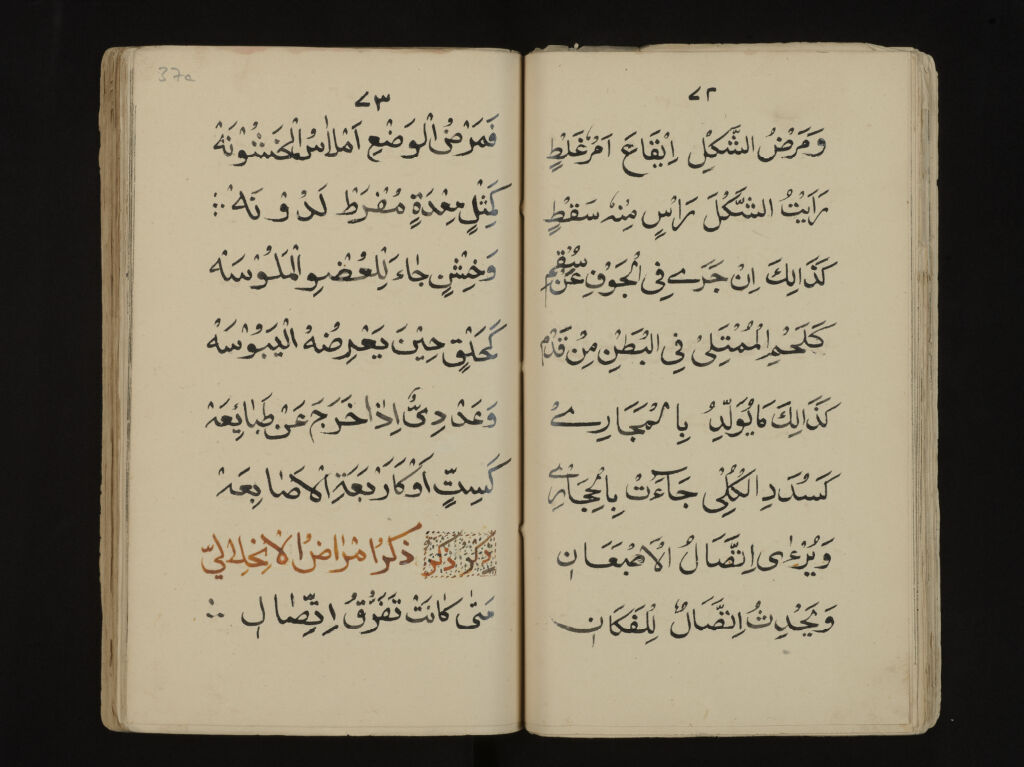 ٧٢
وَمَرَضُ الشَّكْلِ اِيْقَاعَ اَمْرٗ غَلَطٍ
رَاَيْتُ الشَّكْلَ رَاْسٍ مِنْهٗ سَقَطٍ
كَذَالِكَ اِنْ جَرَے فِى الْجَوْفِ عَنْ سُقْمٍ
كَلَحْمِ الْمُمْتَلِىْ فِى البْطَنِ مِنْ قَدَمْ
كَذَالِكَ مَا يُوَلِّدُ بِالْمَجَارِے
كَسُدَدِ الكُلْىِ جَآءَتْ بِالْحِجَارِے
وَيُرْءٰى اِتِّصَالُ الْاَصْبَعَانِ
وَيَحْدِثُ اِتِّصَالٌ لِلْفَكَانِ
37a
٧٣
فَمَرْضُ الْوَضْعِ اَمْلَاسُ الْخَشُوْنَهْ
كَمِثْلِ مِعْدَةٍ مُفْرَطِ لَدُوْنَهْ
وَخِشْنٍ جَاءَ لِلْعُضْوِ الْمَلُوْسَهْ
كَحَلْقٍ حِيْنَ يَعْرِضُهْ الْيَبُوْسَهْ
وَعَدْدِىٌّ اِذَا خَرَجَ عَنْ طَبَائِعَهْ
كَسِتٍّ اَوْ كَاَرْبَعَةِ الْاَصَابِعَهْ
ذكر ذكر ذكر امْرَاضُ الاِنْحِلَالىّ
مَتٰى كَانَتْ تَفَرُّقُ اِتِّصَالِ